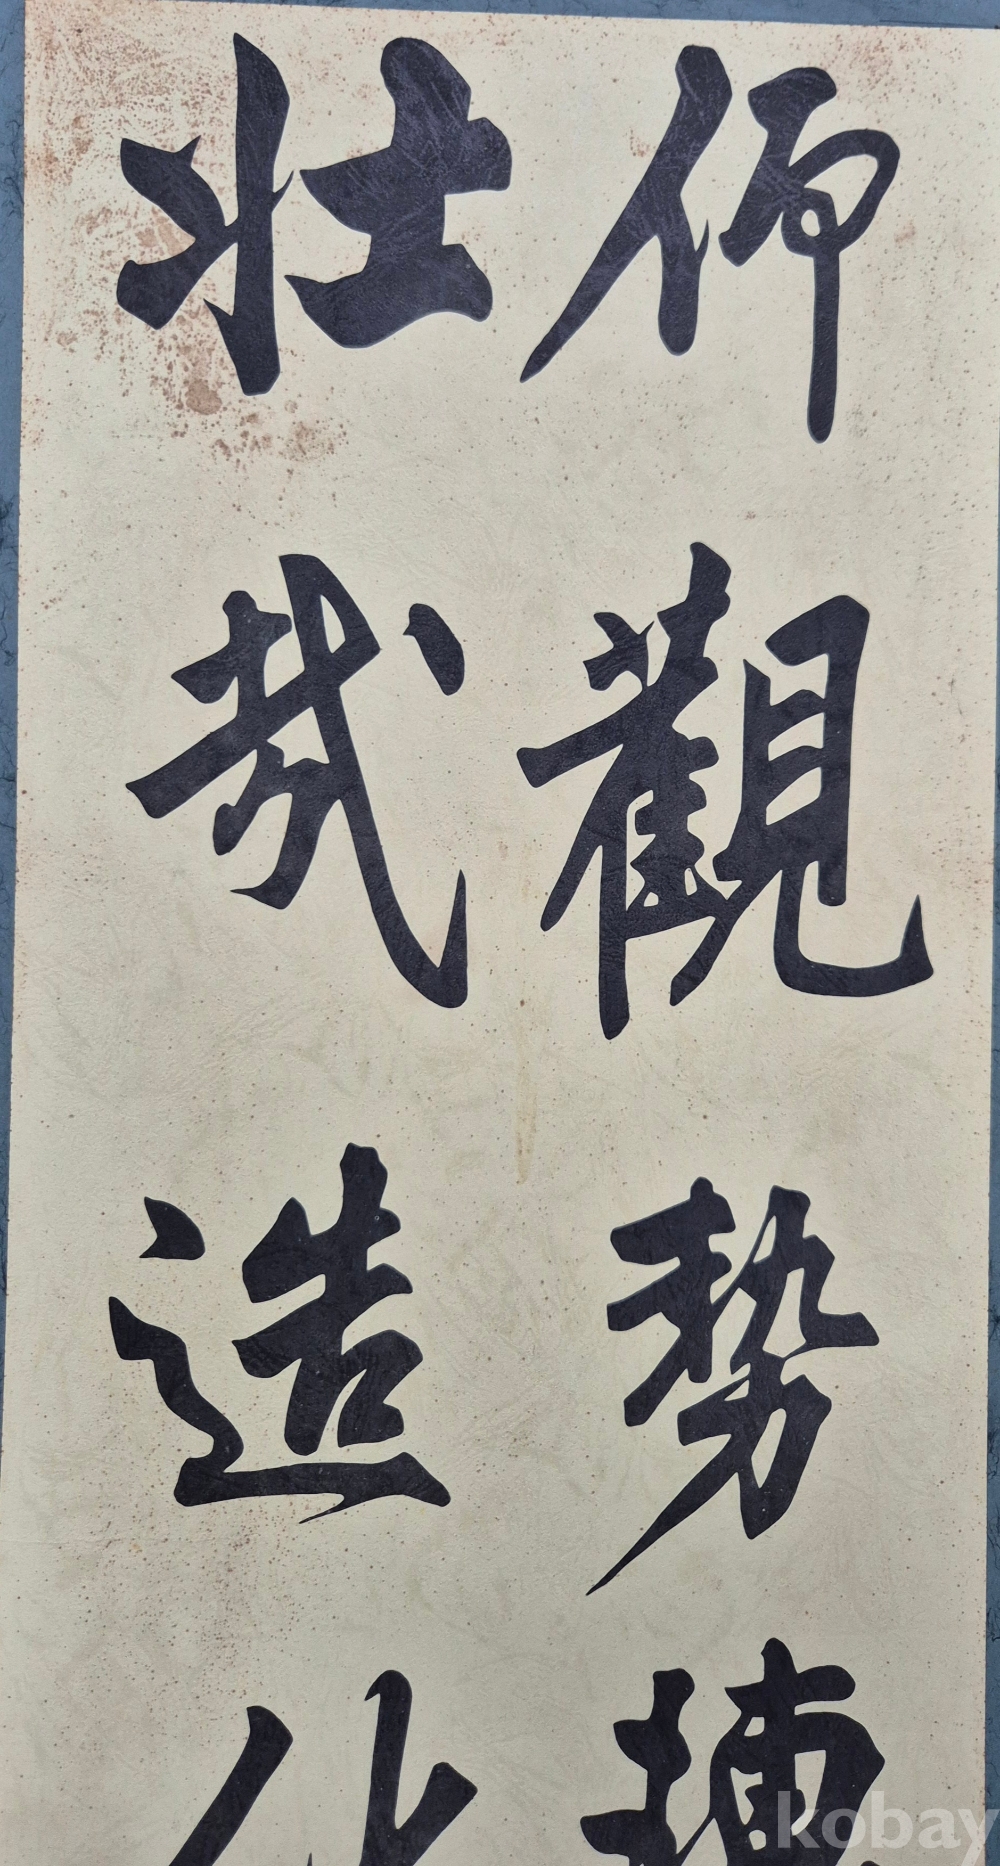 仰觀勢轉
壯哉造化
kobay